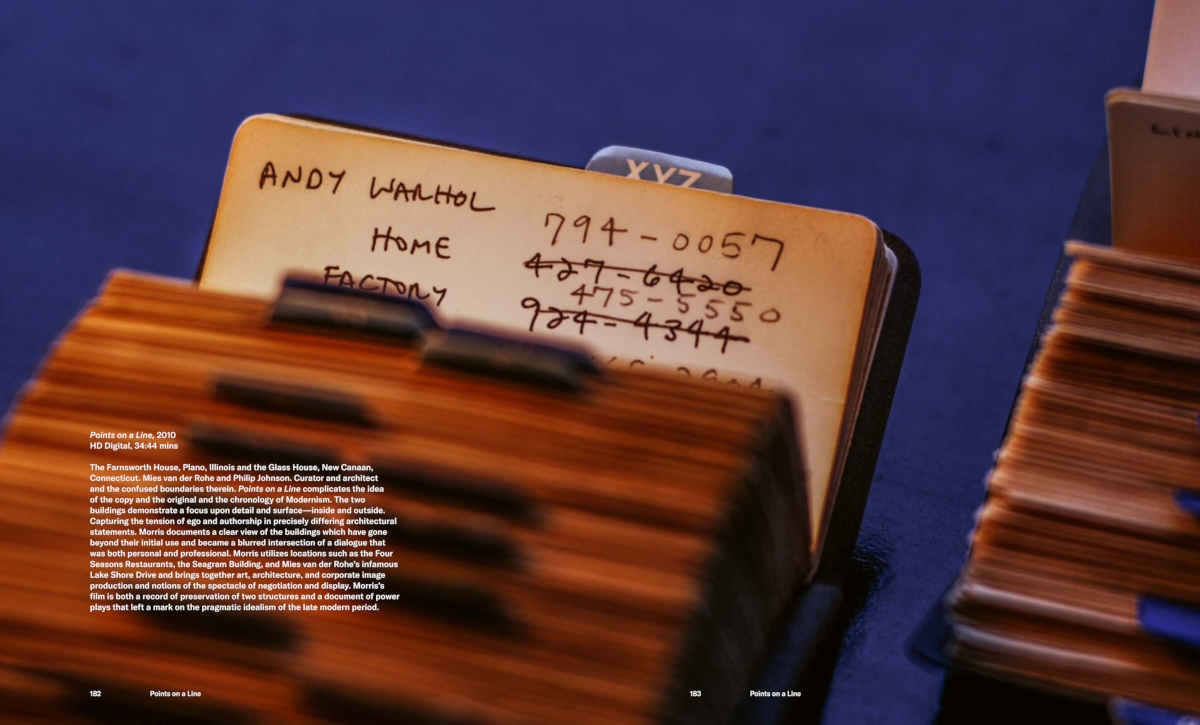 XYZ
ANDY WARHOL
794-0057
HOME
427-6420
475-5550
FACTORY
924-4344
Points on a Line, 2010
HD Digital, 34:44 mins
The Farnsworth House, Plano, Illinois and the Glass House, New Canaan,
Connecticut. Mies van der Rohe and Philip Johnson. Curator and architect
and the confused boundaries therein. Points on a Line complicates the idea
of the copy and the original and the chronology of Modernism. The two
buildings demonstrate a focus upon detail and surface—inside and outside.
Capturing the tension of ego and authorship in precisely differing architectural
statements. Morris documents a clear view of the buildings which have gone
beyond their initial use and became a blurred intersection of a dialogue that
was both personal and professional. Morris utilizes locations such as the Four
Seasons Restaurants, the Seagram Building, and Mies van der Rohe's infamous
Lake Shore Drive and brings together art, architecture, and corporate image
production and notions of the spectacle of negotiation and display. Morris's
film is both a record of preservation of two structures and a document of power
plays that left a mark on the pragmatic idealism of the late modern period.
182 Points on a Line
183 Points on a Line